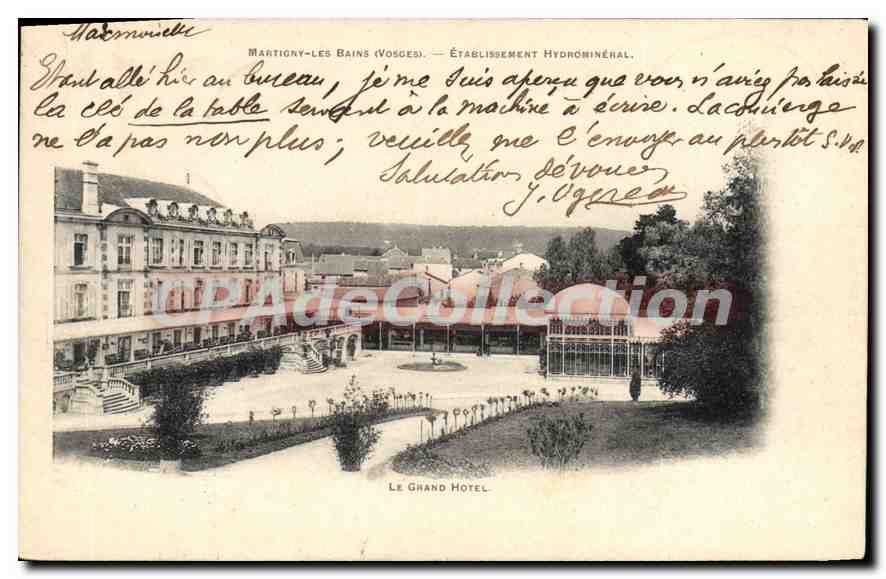 Mademoiselle
MARTIGNY-LES BAINS (VOSGES). — ÉTABLISSEMENT HYDROMINÉRAL.
Etant allé hier au bureau, je me suis aperçu que vous n'aviez pas laissé
la clé de la table servant à la machine à écrire. La concierge
ne l'a pas non plus; veuillez me l'envoyer au plus tôt S.V.P.
Salutations dévouées
CPACollection.com
LE GRAND HOTEL.